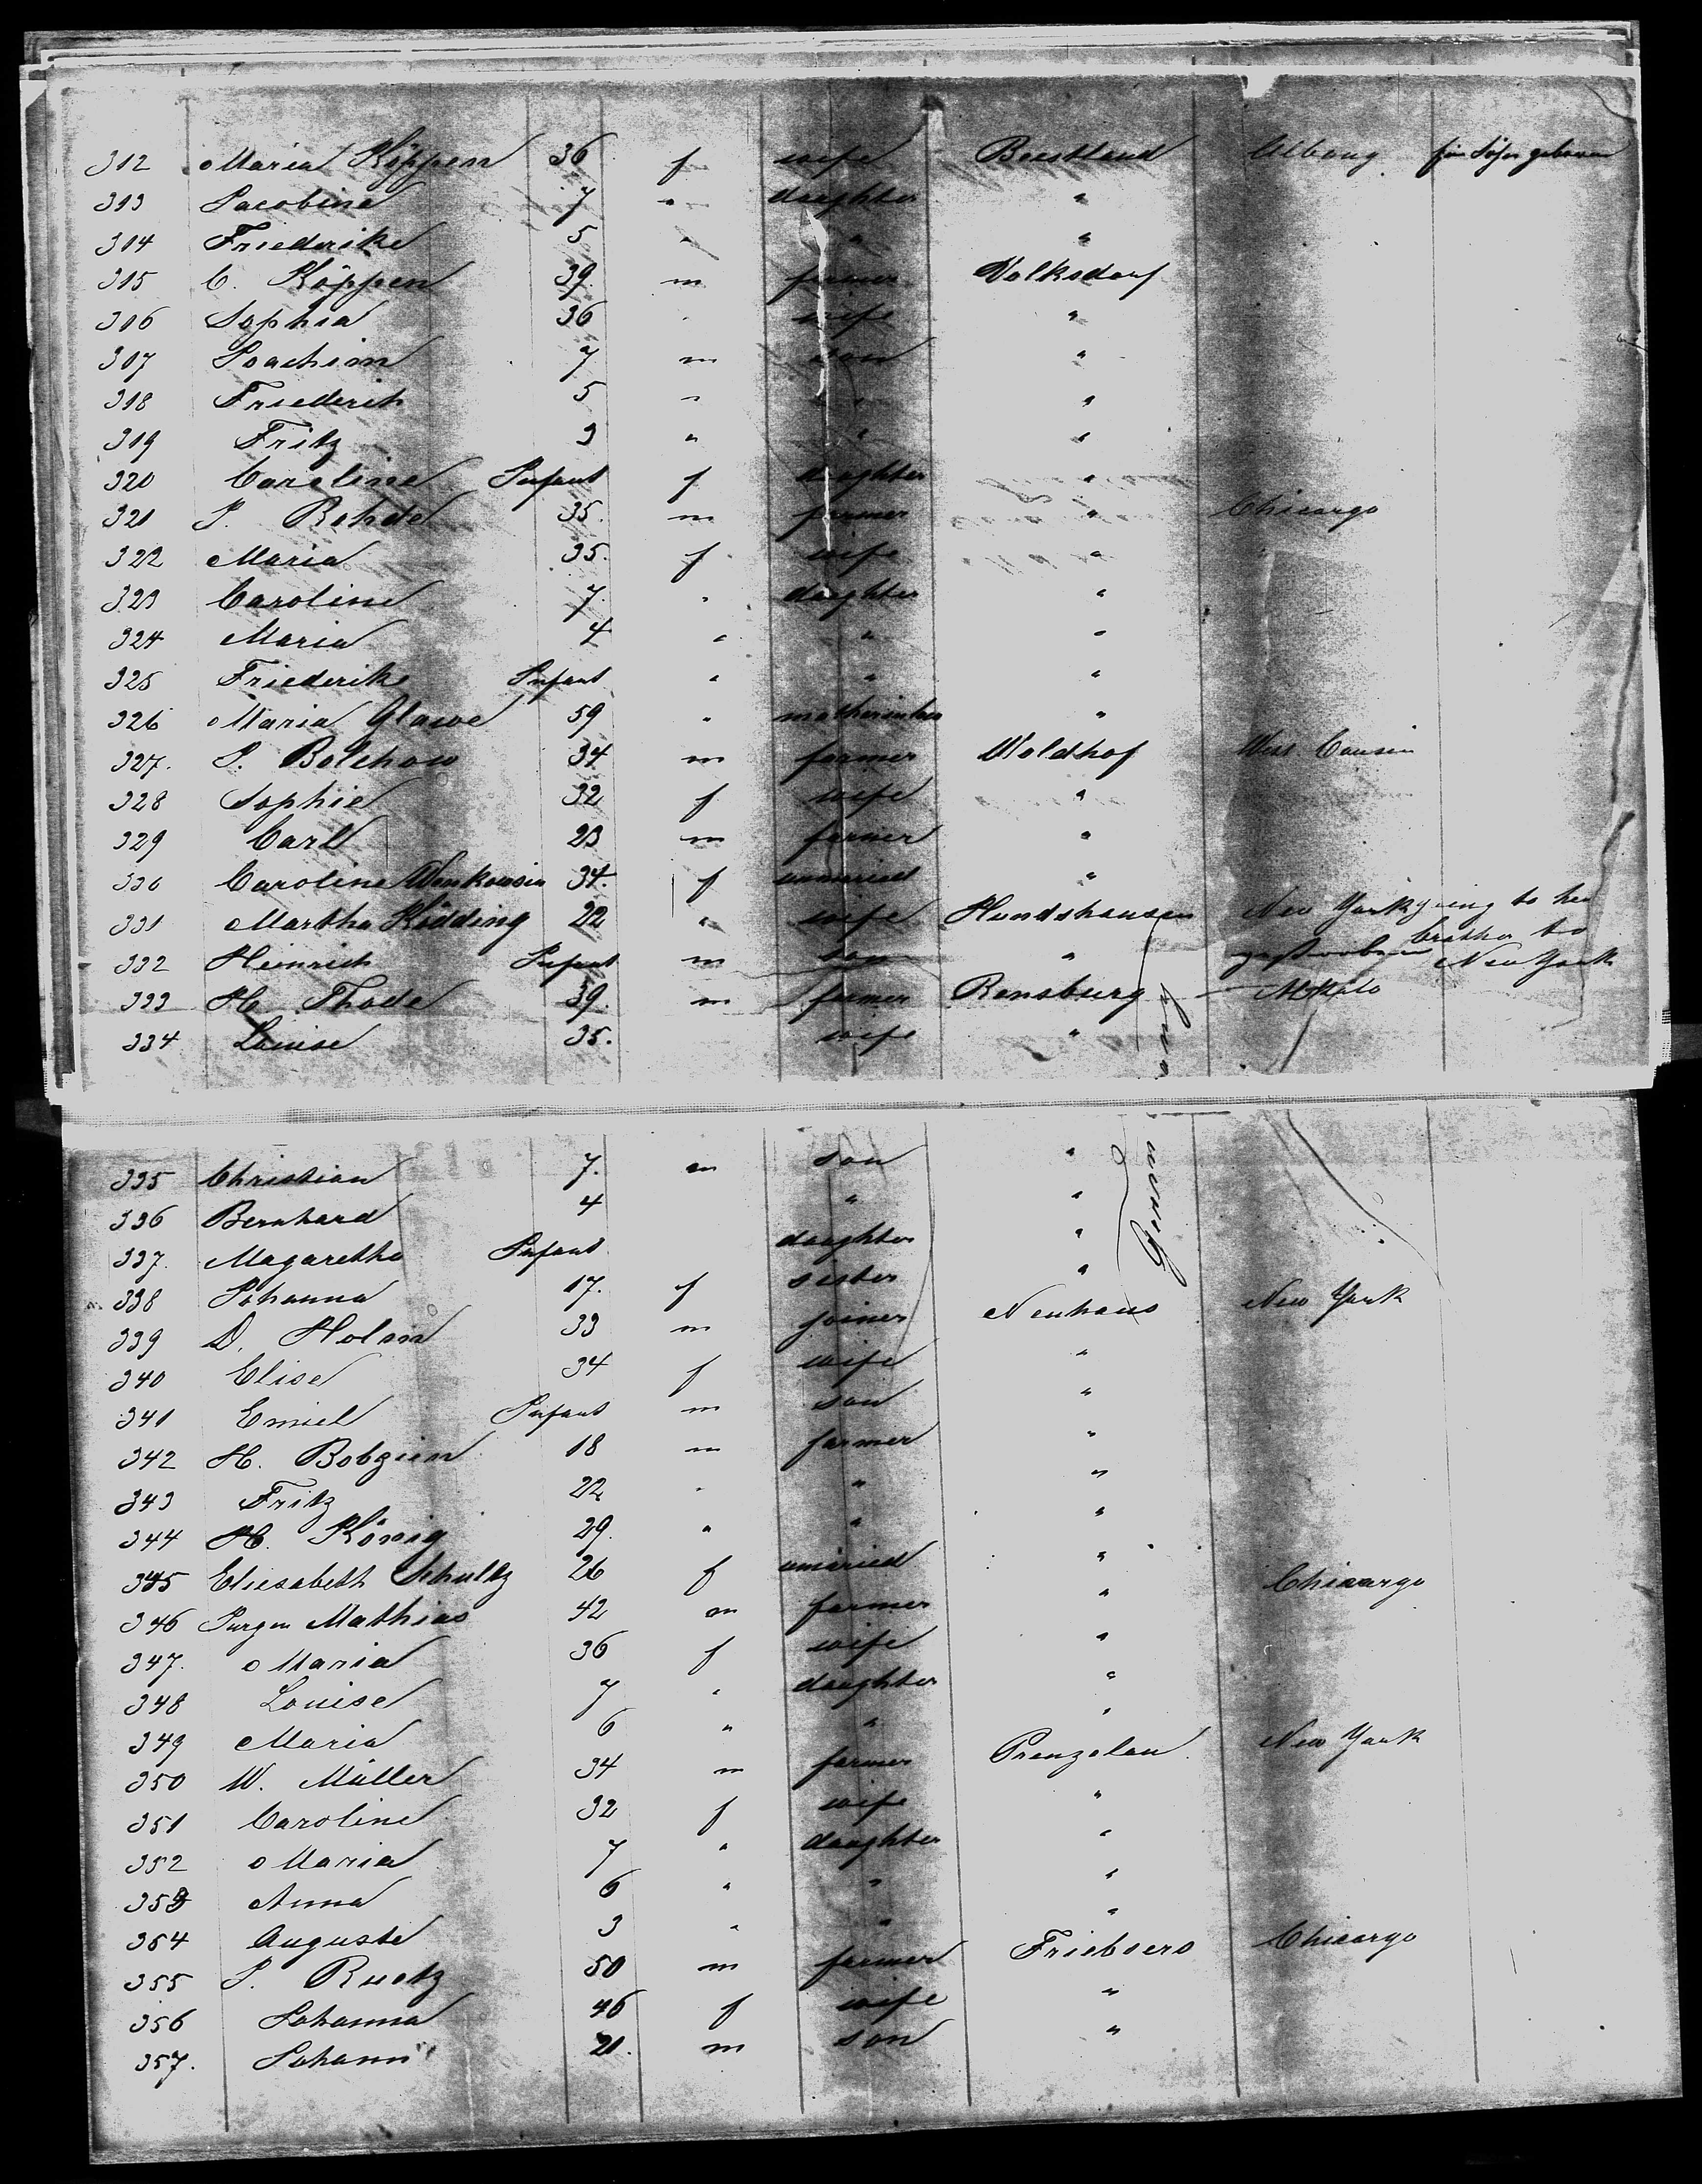 312 Maria Köppen 36 f wife Beestland Albany
313 Jacobine 7 " daughter "
314 Friederike 5 " " "
315 C. Köppen 39 m farmer Volksdorf
316 Sophia 36 " wife "
317 Joachim 7 m son "
318 Friederich 5 " " "
319 Fritz 3 " " "
320 Caroline Infant f daughter "
321 J. Rohde 35. m farmer " Chicargo
322 Maria 35. f wife "
323 Caroline 7. " daughter "
324 Maria 4 " " "
325 Friederike Infant " " "
326 Maria Glawe 59 " motherinlaw "
327. J. Bolchow 34 m farmer Woldhof Wess Consin
328 Sophie 32 f wife "
329 Carl 23 m farmer "
330 Caroline 34. f unmaried "
331 Martha Kidding 22 " wife Hundshausen New York going to her
brother to
332 Heinrich Infant m son " gestorben New York
333 H. Thode 39. m farmer Rensburg
334 Louise 35. wife "
335 Christian 7. m son "
336 Bernhard 4 " "
337. Magaretha Infant daughter "
338 Johanna 17. f sister "
339 D. Holm 33 m joiner Neuhaus New York
340 Elise 34 f wife "
341 Emiel Infant m son "
342 H. Bobzien 18 m farmer "
343 Fritz 22 " " "
344 H. König 29. " " "
345 Eliesabeth Schultz 26 f unmaried "
346 Jurgen Mathias 42 m farmer " Chicargo
347. Maria 36 f wife "
348 Louise 7 " daughter "
349 Maria 6 " " "
350 W. Müller 34 m farmer Prenzelau. New York
351 Caroline 32 f wife "
352 Maria 7 " daughter "
353 Anna 6 " " "
354 Auguste 3 " " "
355 J. Ruetz 50 m farmer Friebsers Chicargo
356 Johanna 46 f wife "
357. Johann 21. m son "